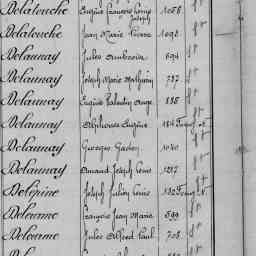 Delatouche Eugène François Louis Joseph 1056 ft
Delatouche Jean Marie Pierre 1092 ft
Delaunay Jules Ambroise 694 ft
Delaunay Joseph Marie Mathurin 737 ft
Delaunay Eugène Valentin Ange 835 ft
Delaunay Alphonse Eugène
Delaunay Georges Gaston 1040 ft
Delaunay Armand Joseph Louis 1237 ft
Delépine Joseph Julien Louis
Delourme François Jean Marie 599 ft
Delourme Jules Alfred Paul 708 ft